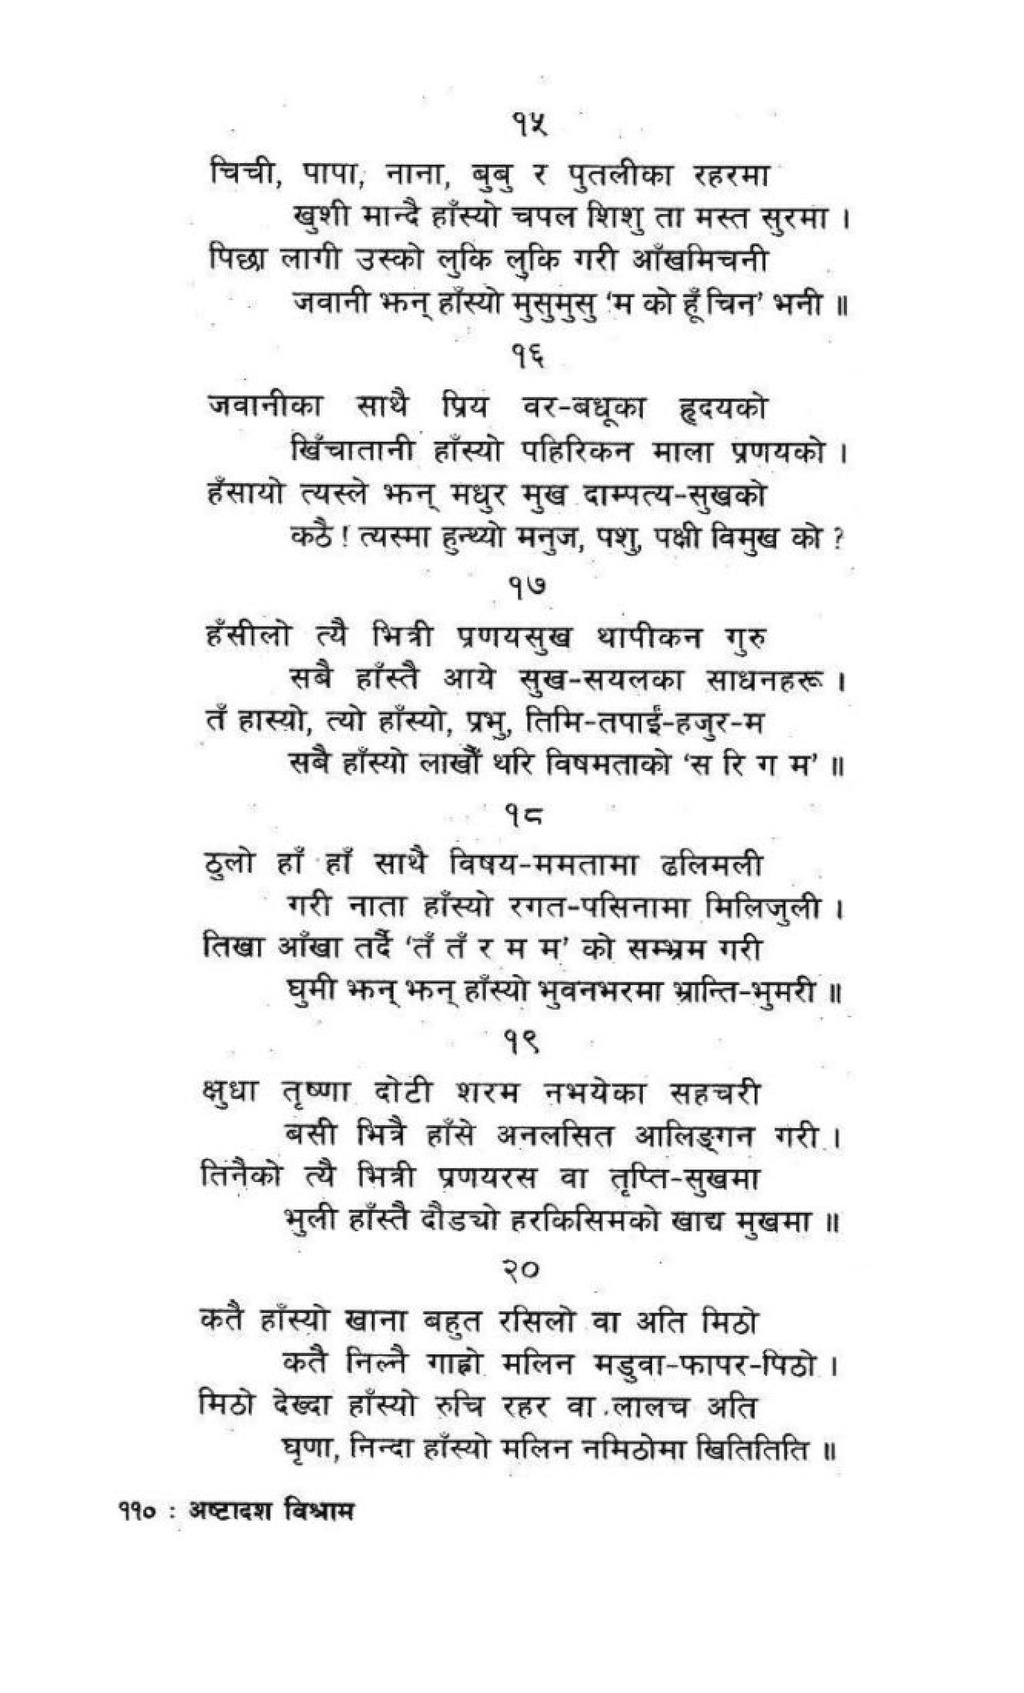 १५
चिची, पापा, नाना, बुबु र पुतलीका रहरमा
खुशी मान्दै हाँस्यो चपल शिशु ता मस्त सुरमा ।
पिछा लागी उस्को लुकि लुकि गरी आँखमिचनी
जवानी झन् हाँस्यो मुसुमुसु ‘म को हूँ चिन’ भनी ॥
१६
जवानीका साथै प्रिय वर-बधूका हृदयको
खिँचातानी हाँस्यो पहिरिकन माला प्रणयको ।
हँसायो त्यस्ले झन् मधुर मुख दाम्पत्य-सुखको
कठै ! त्यस्मा हुन्थ्यो मनुज, पशु, पक्षी विमुख को ?
१७
हँसीलो त्यै भित्री प्रणयसुख थापीकन गुरु
सबै हाँस्तै आये सुख-सयलका साधनहरू ।
तँ हास्यो, त्यो हाँस्यो, प्रभु, तिमि-तपाईं-हजुर-म
सबै हाँस्यो लाखौँ थरि विषमताको ‘स रि ग म’ ॥
१८
ठुलो हाँ हाँ साथै विषय-ममतामा ढलिमली
गरी नाता हाँस्यो रगत-पसिनामा मिलिजुली ।
तिखा आँखा तर्दै ‘तँ तँ र म म’ को सम्भ्रम गरी
घुमी झन् झन् हाँस्यो भुवनभरमा भ्रान्ति-भुमरी ॥
१९
क्षुधा तृष्णा दोटी शरम नभयेका सहचरी
बसी भित्रै हाँसे अनलसित आलिङ्गन गरी ।
तिनैको त्यै भित्री प्रणयरस वा तृप्ति-सुखमा
भुली हाँस्तै दौड्यो हरकिसिमको खाद्य मुखमा ॥
२०
कतै हाँस्यो खाना बहुत रसिलो वा अति मिठो
कतै निल्नै गाह्रो मलिन मडुवा-फापर-पिठो ।
मिठो देख्दा हाँस्यो रुचि रहर वा लालच अति
घृणा, निन्दा हाँस्यो मलिन नमिठोमा खितितिति ॥
११० : अष्टादश विश्राम